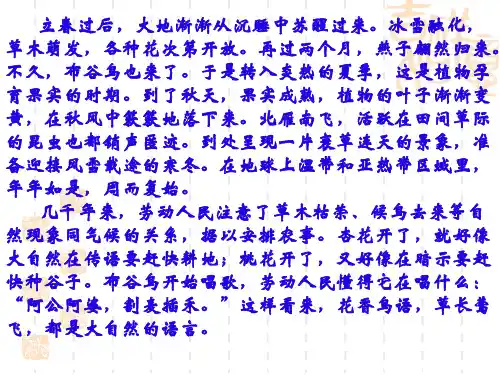 立春过后，大地渐渐从沉睡中苏醒过来。冰雪融化，
草木萌发，各种花次第开放。再过两个月，燕子翩然归来
不久，布谷鸟也来了。于是转入炎热的夏季，这是植物孕
育果实的时期。到了秋天，果实成熟，植物的叶子渐渐变
黄，在秋风中簌簌地落下来。北雁南飞，活跃在田间草际
的昆虫也都销声匿迹。到处呈现一片衰草连天的景象，准
备迎接风雪载途的寒冬。在地球上温带和亚热带区域里，
年年如是，周而复始。
几千年来，劳动人民注意了草木枯荣、候鸟去来等自
然现象同气候的关系，据以安排农事。杏花开了，就好像
大自然在传语要赶快耕地；桃花开了，又好像在暗示要赶
快种谷子。布谷鸟开始唱歌，劳动人民懂得它在唱什么：
“阿公阿婆，割麦插禾。”这样看来，花香鸟语，草长莺
飞，都是大自然的语言。